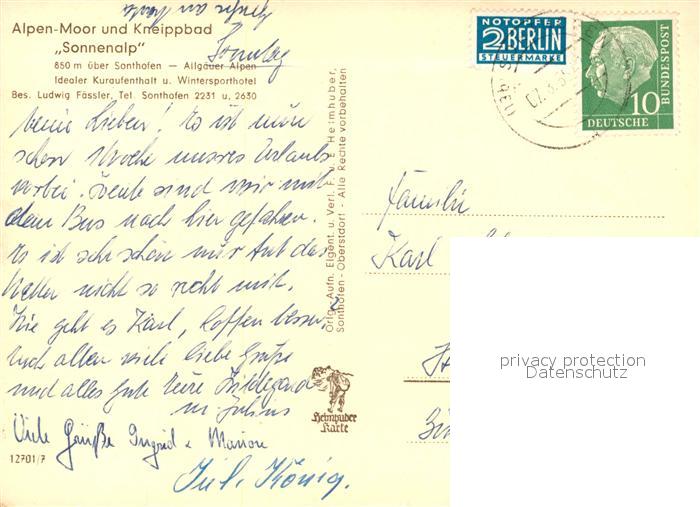 Grüße an
Alpen-Moor und Kneippbad
„Sonnenalp"
850 m über Sonthofen — Allgäuer Alpen
Idealer Kuraufenthalt u. Wintersporthotel
Bes. Ludwig Fässler, Tel. Sonthofen 2231 u. 2630
Sonntag
Meine Lieben! Es ist nun
schon Woche unseres Urlaubs
vorbei. Heute sind wir mit
dem Bus nach hier gefahren.
Es ist sehr schön nur tut das
Wetter nicht so recht mit.
Wie geht es Karl, hoffen besser,
Euch allen viele liebe Grüße
und alles Gute Eure Hildegard
u. Julius
Viele Grüße Ingrid u. Marion
Jul. König.
12701/7
Orig.-Aufn. Eigent. u. Verl. F. u. E. Heimhuber,
Sonthofen - Oberstdorf - Alle Rechte vorbehalten
Heimhuber
Karte
NOTOPFER
2 BERLIN
STEUERMARKE
10
DEUTSCHE
BUNDESPOST
Familie
Karl
privacy protection
Datenschutz